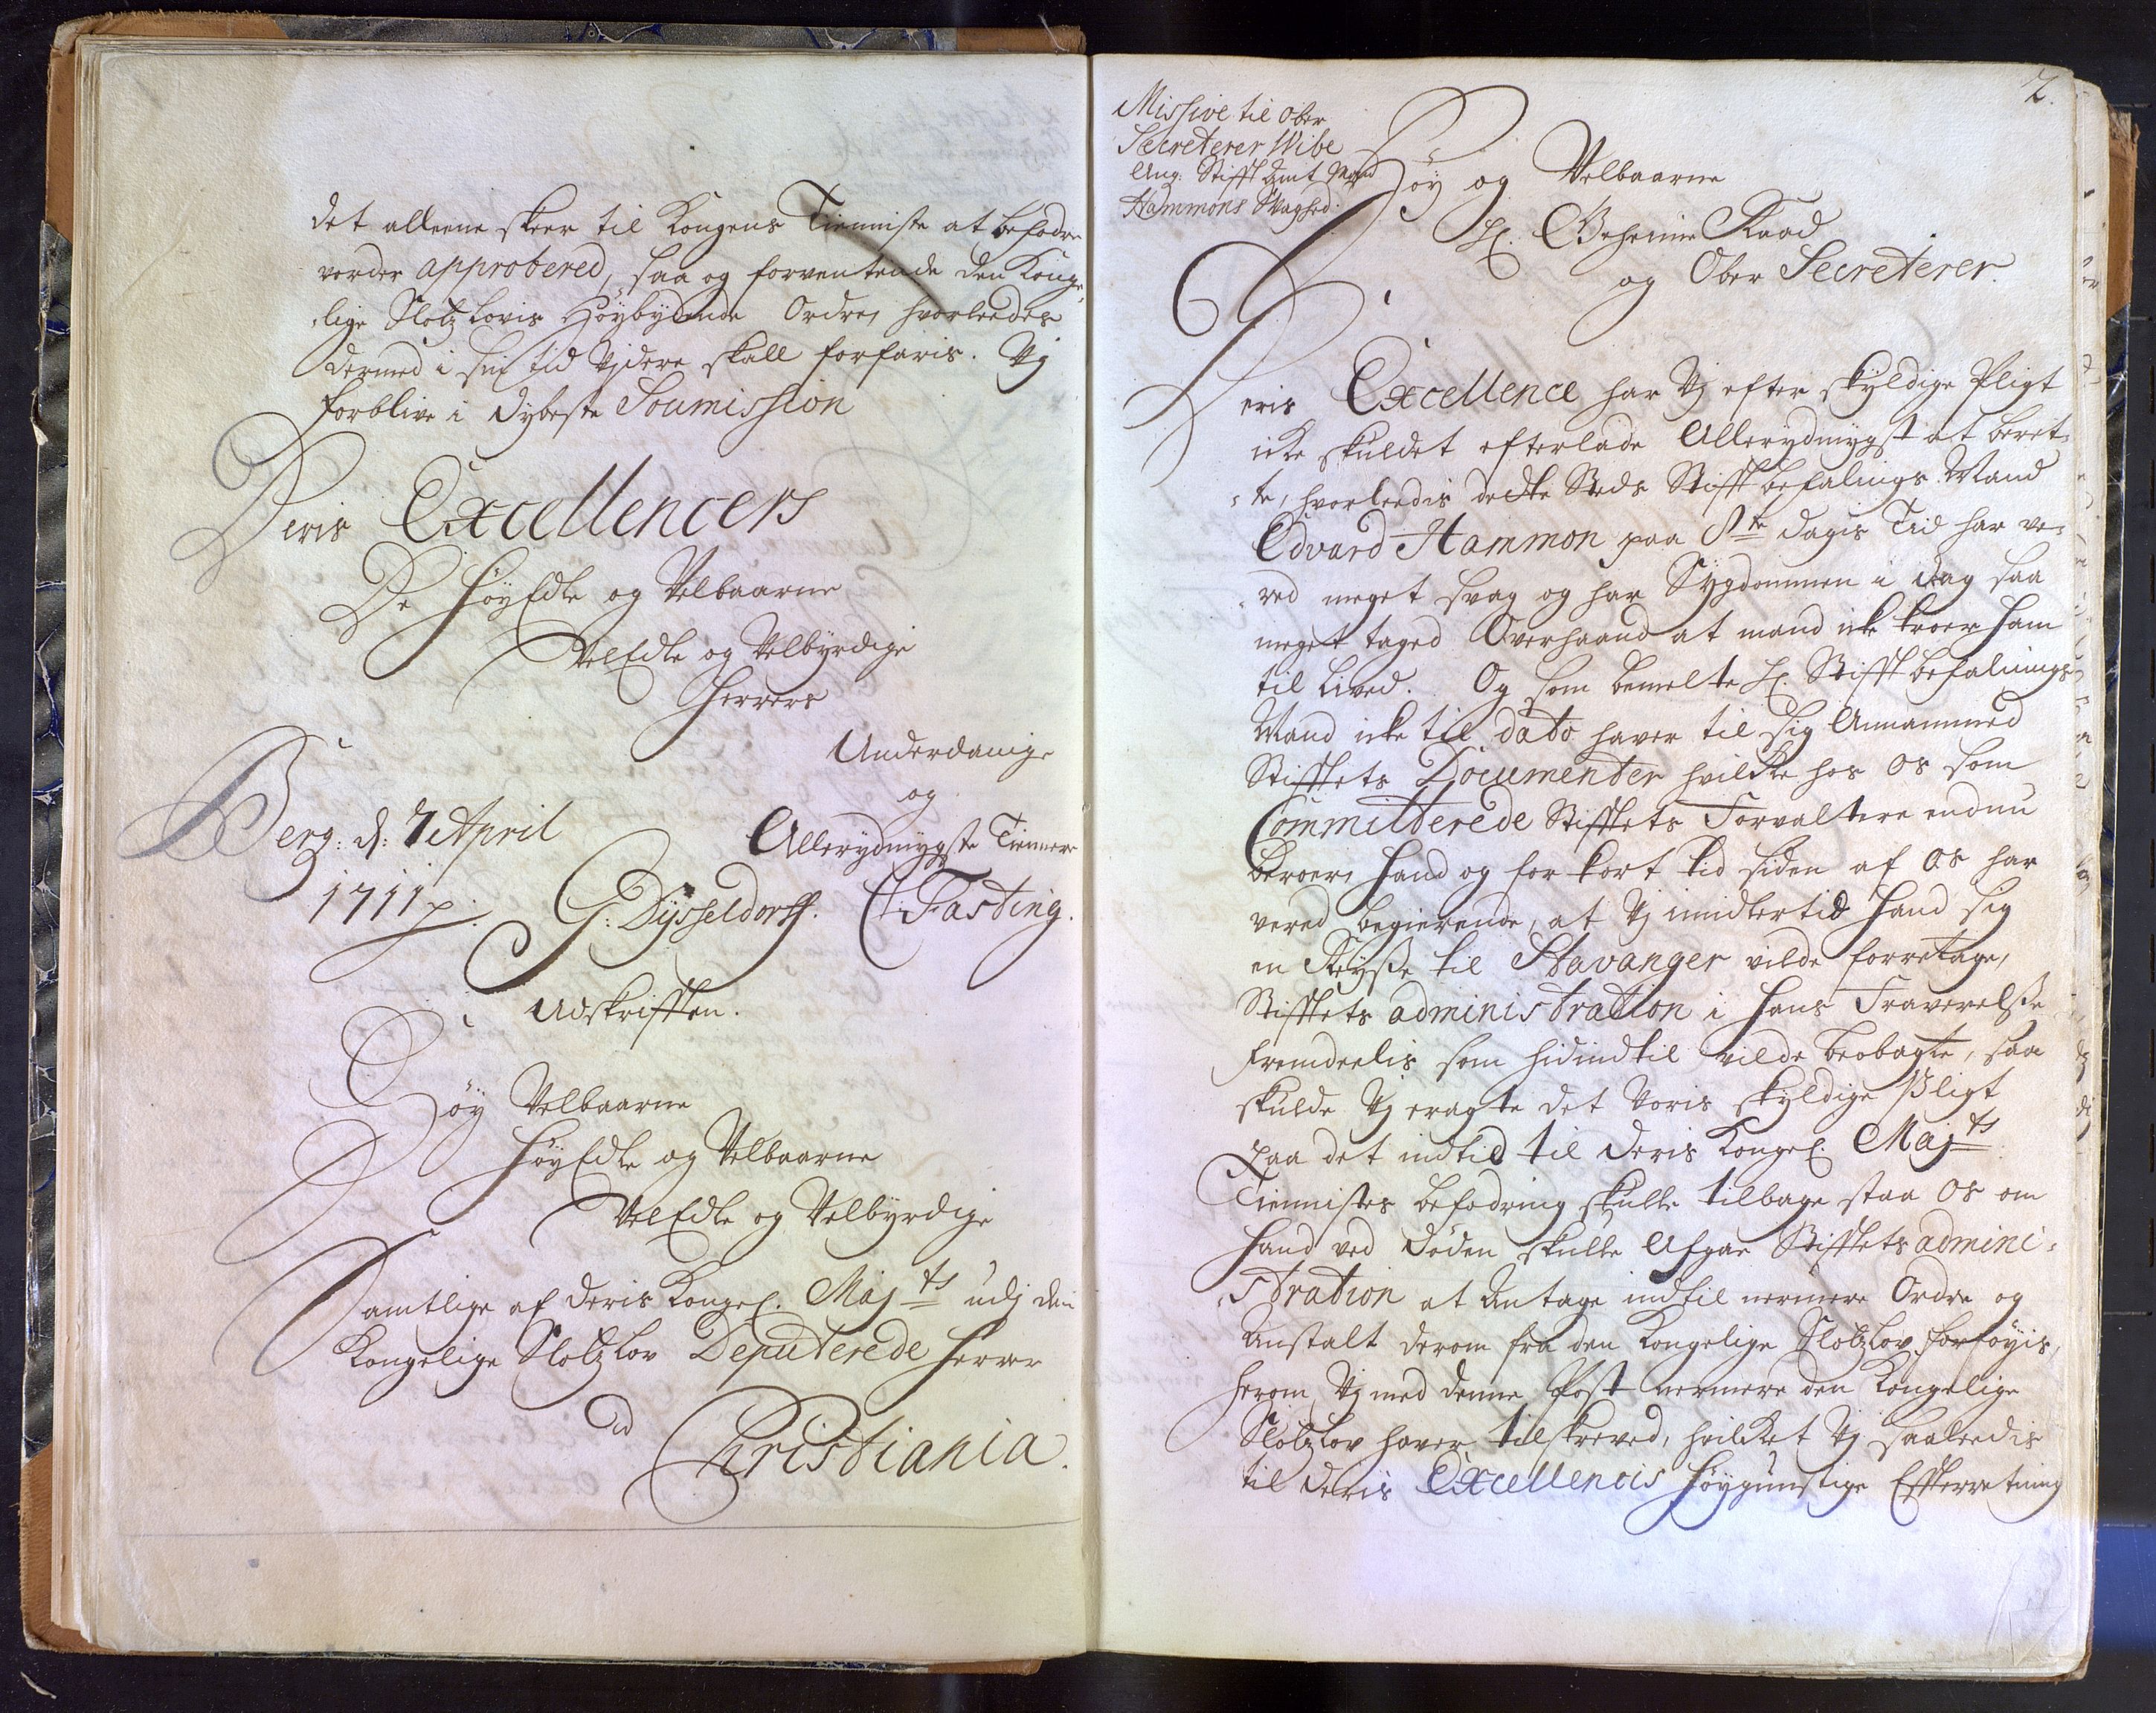 det alleene skeer til Kongens Tienniste at befodre
vorder approbered, saa og forventende den Konge,
,lige Slotz Lovis Høybydende Ordre, hvorleedes
dermed i sin tid Videre skall forfaris. Vj
forblive i dybeste Soumission
Deris Excellencers
De HøyEdle og Velbaarne
VelEdle og Velbyrdige
Herrers
Underdanige
og
Allerydmygste Tiennere
Berg: d: 7 April
1711
G: Dÿsseldorff. C: Fasting.
Udskrifften.
Høy Velbaarne
HøyEdle og Velbaarne
VelEdle og Velbyrdige
Samtlige af Deris Kongel. Majts udj den
Kongelige Slotz Lov Deputerede Herrer
ad
Christiania.
2.
Missive til Ober
Secreterer Wibe
Ang: Stifft Amt Mand
Hammons Svaghed.
Høy og Velbaarne
H. Geheime Raad
og Ober Secreterer.
Deris Excellence har Vj efter skyldige Pligt
icke skuldet efterlade Allerydmygst at beret-
-te, hvorleedis dette Steds Stifft befalings Mand
Edvard Hammon paa 8te dagis Tid har ve-
-red meget svag og har Sÿgdommen i dag saa
meget taged Overhaand at mand icke troer ham
til Lived. Og som bemelte H. Stifft befalnings
Mand icke til dato haver til sig Annammed
Stifftets Documenter hvilcke hos os som
Committerede Stifftets Forvaltere endnu
beroer, Hand og for kort tid siden af os har
vered begierende, at Vj imidlertid Hand sig
en Reÿsse til Stavanger vilde forretage,
Stifftets administration i hans Fraverelsse
fremdeelis som hidindtil vilde beobagte, saa
skulde Vj eragte det Voris skyldige Pligt
paa det indtid til Deris Kongel. Majts
Tiennistes befodring skulle tilbage staa os om
Hand ved Døden skulle Afgaa Stifftets admini-
-stration at Antage indtil nermere Ordre og
Anstalt derom fra den Kongelige Slotzlov forføyis,
herom Vj med denne Post nermere den Kongelige
Slotzlov haver tilskreved, hvilcket Vj saaleedis
til Deris Excellencis Høygunstige Efterretning